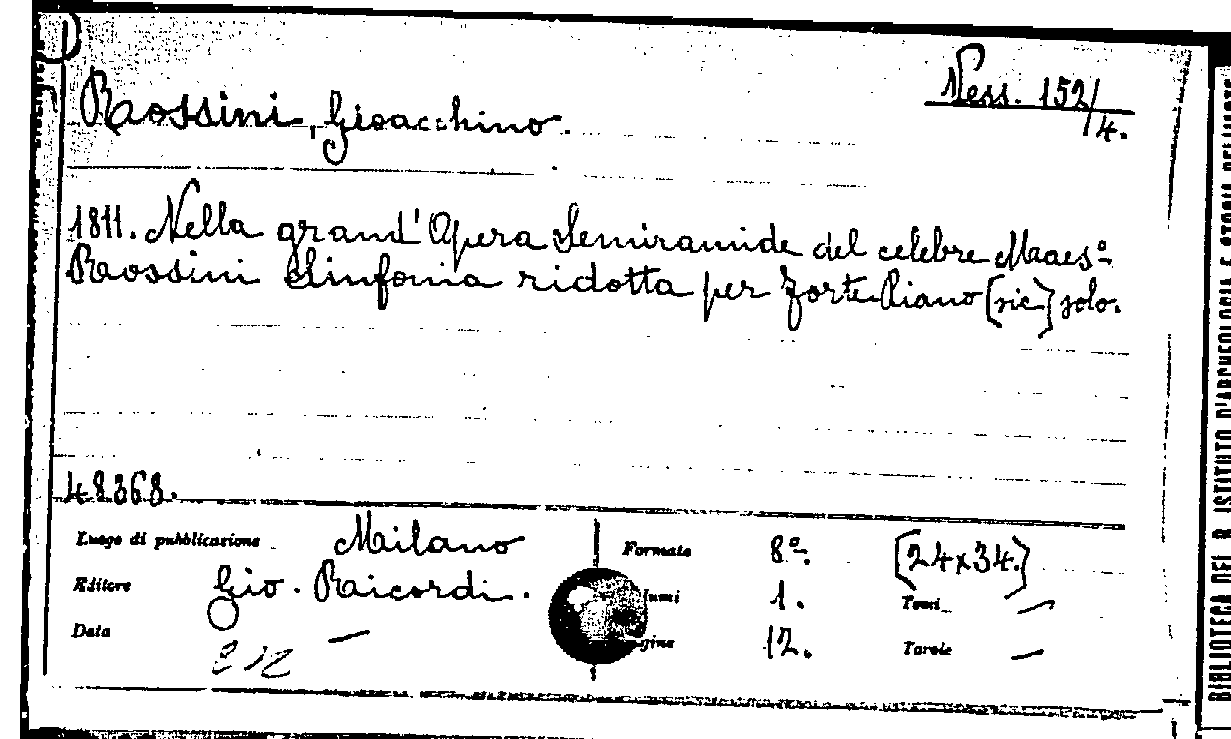 Vess. 152/4.
Rossini, Gioacchino.
1811. Nella grand' Opera Semiramide del celebre Maes.º
Rossini Sinfonia ridotta per Forte-Piano [sic] solo.
48368.
Luogo di pubblicazione Milano Formato 8º. [24x34.]
Editore Gio. Ricordi. lumi 1. Tomi —
Data — gine 12. Tavole —
BIBLIOTECA DEL R. ISTITUTO D'ARCHEOLOGIA E STORIA DELL'ARTE